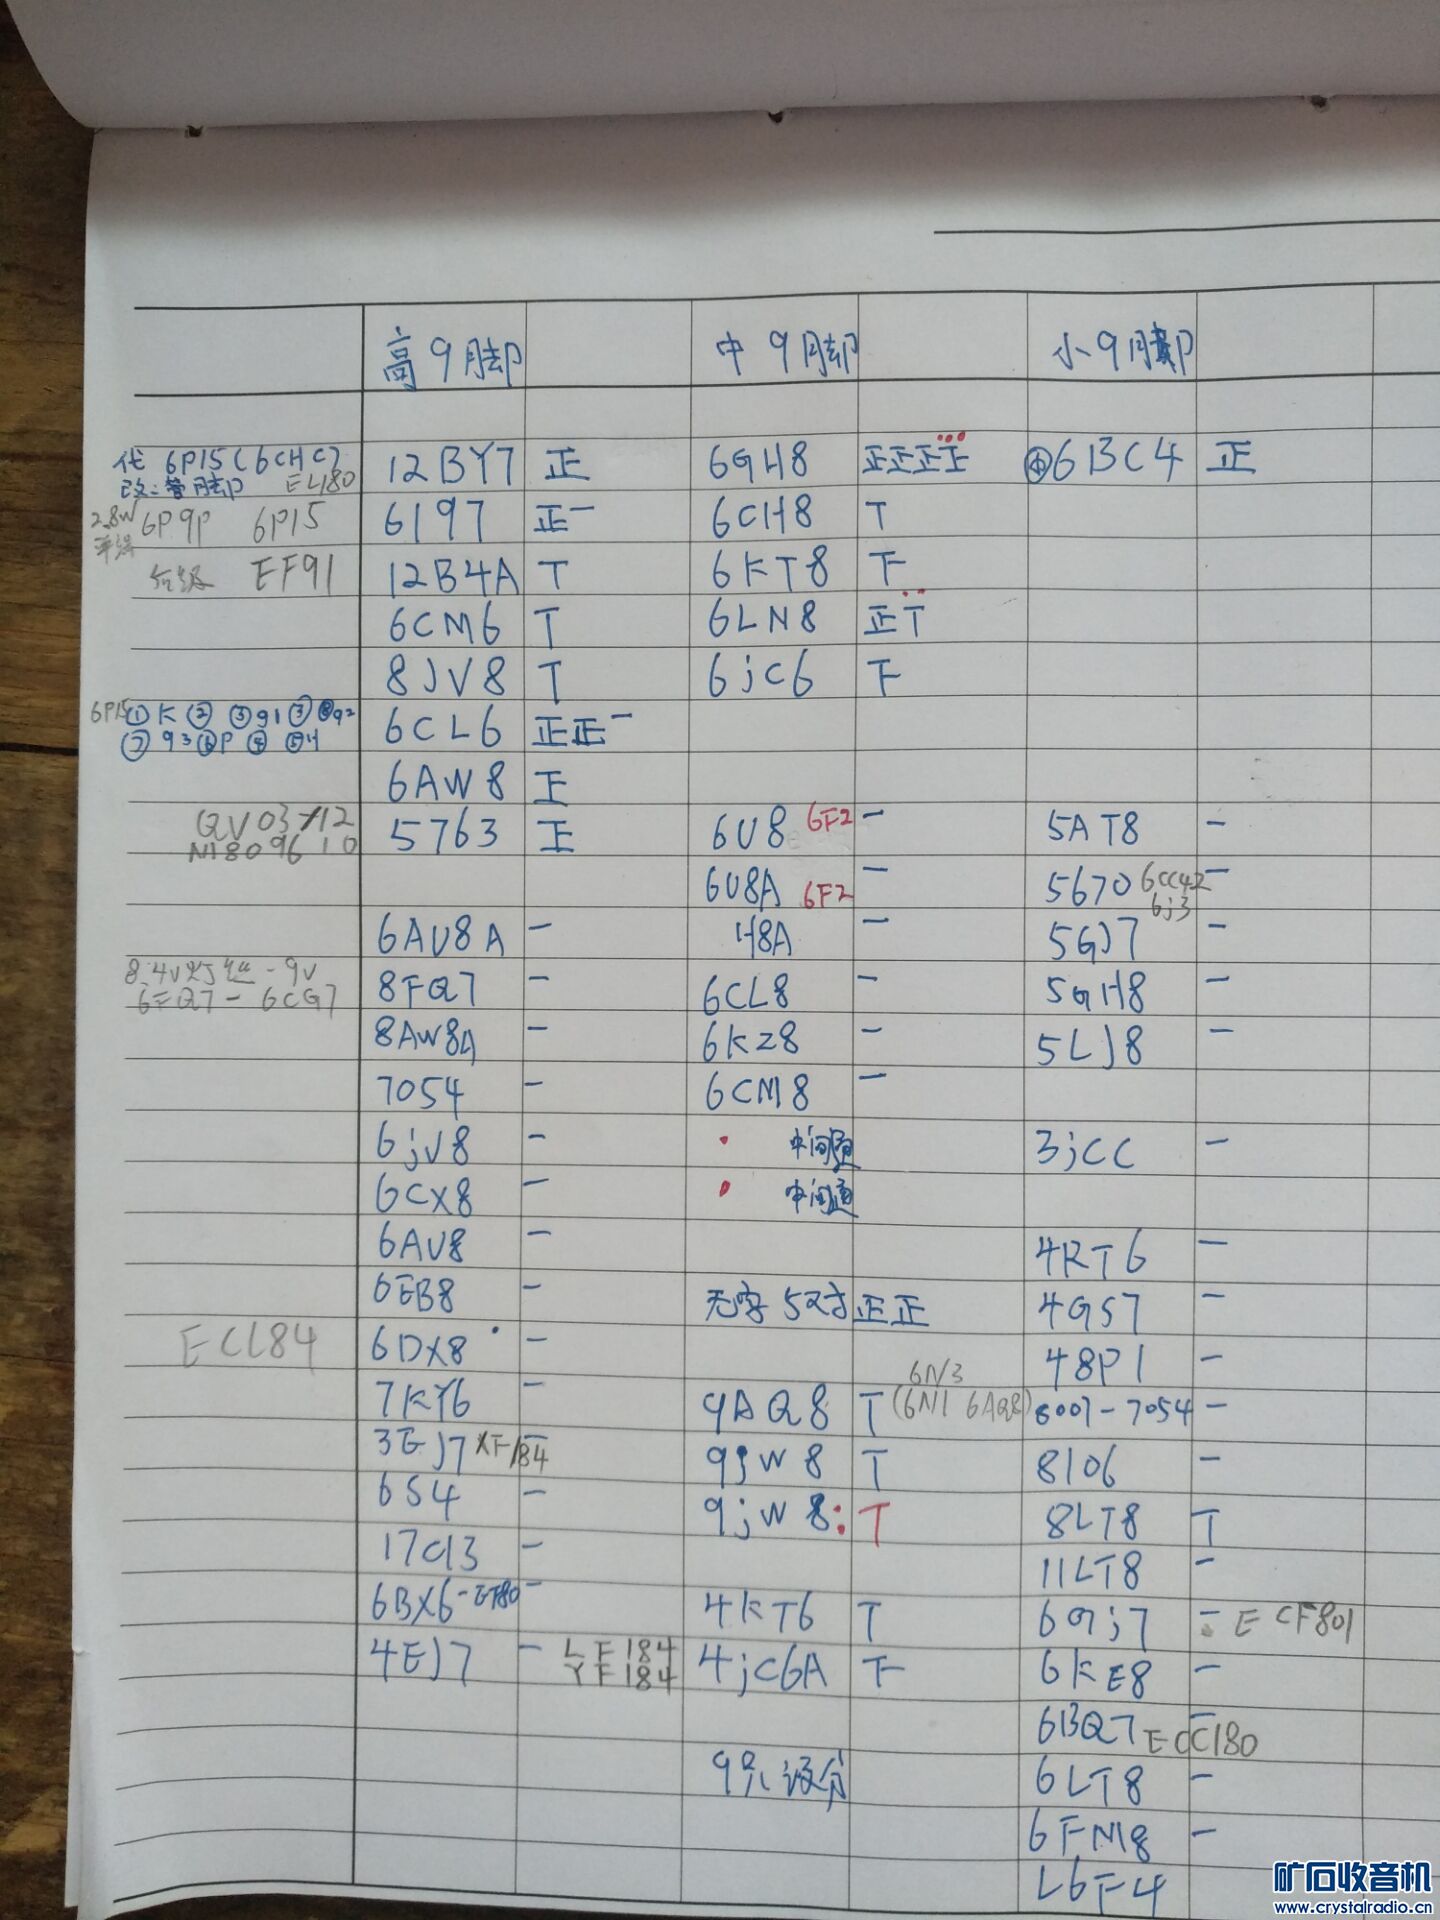 高9脚 中9脚 小9脚
代 6P15(6CHC7 12BY7 正 6GH8 正正正正 ④6BC4 正
改:管脚 EL180
2.8W 6P9P 6P15 6197 正一 6CH8 T
EF91 12B4A T 6KT8 下
6CM6 T 6LN8 正T
8JV8 T 6jC6 下
6P15 ① K ② ③ g1 ③ ⑧ g2 6CL6 正正一
⑦ g3 ⑥ P ④ ⑤ H
6AW8 正
QV03-12 5763 正 6U8 6F2 一 5AT8 一
M8096 10
6U8A 6F2 一 5670 6CC42 一
6j3
6AU8A 一 H8A 一 5GJ7 一
8.4V灯丝-9V 8FQ7 一 6CL8 一 5GH8 一
6FQ7 - 6CG7
8AW8A 一 6KZ8 一 5LJ8 一
7054 一 6CM8 一
6jV8 一 中间 3jCC 一
6CX8 一 中间通
6AV8 一 4KT6 一
6EB8 一 无字 5对 正正 4GS7 一
ECL84 6DX8 一 48P1 一
6N3
7KY6 一 9AQ8 T (6N1 6AQ8) 8007-7054 一
3EJ7 XF184 一 9jW8 T 8106 一
6S4 一 9jW8: T 8LT8 T
17C13 一 11LT8 一
6BX6-EF80 一 4KT6 T 6Gj7 一 ECF801
4EJ7 一 LF184 4jC6A 下 6KE8 一
YF184
6BQ7 一 ECC180
9只没分 6LT8 一
6FM8 一
L6F4
矿石收音机
www.crystalradio.cn